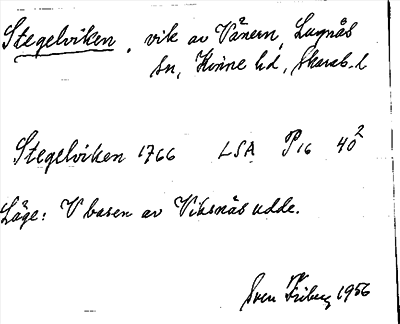 Stegelviken, vik av Vänern, Lugnås
sn, Kinne hd, Skarab. l
Stegelviken 1766 LSA P16 40²
Läge: V basen av Viksnäs udde.
Sven Friberg 1956